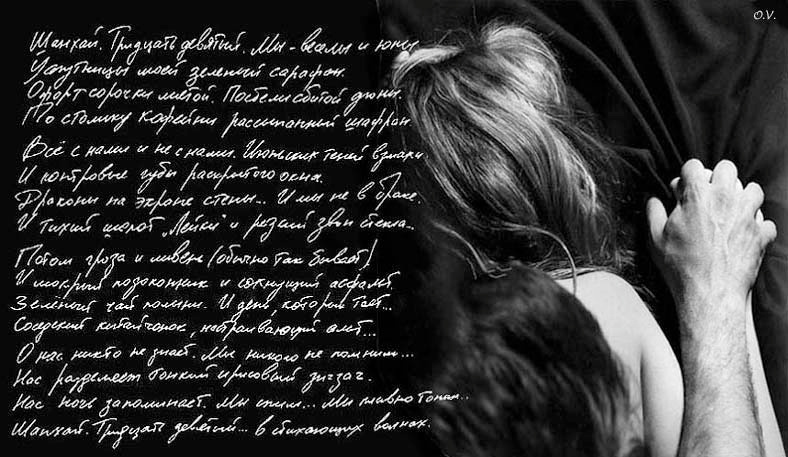 O.V.
Шанхай. Тридцать девятый. Мы - веселы и юны.
У спутницы моей зеленый сарафан.
Офорт сорочки мятой. Постели сбитой дюны.
По столику кофейни рассыпанный шафран.
Всё с нами и не с нами. Июньских теней взмахи.
И контровые губы раскрытого окна.
Драконы на экране стены... И мы не в браке.
И тихий шепот „Лейки" и резкий звон стекла...
Потом гроза и ливень (обычно так бывает)
И мокрый подоконник и сохнущий асфальт.
Зелёный чай жасмин. И день, который тает...
Соседский китайчонок, настраивающий альт...
О нас никто не знает. Мы никого не помним...
Нас разделяет тонкий ирисовый зигзаг.
Нас ночь запоминает. Мы спим... Мы плавно тонем...
Шанхай. Тридцать девятый... в стихающих волнах.